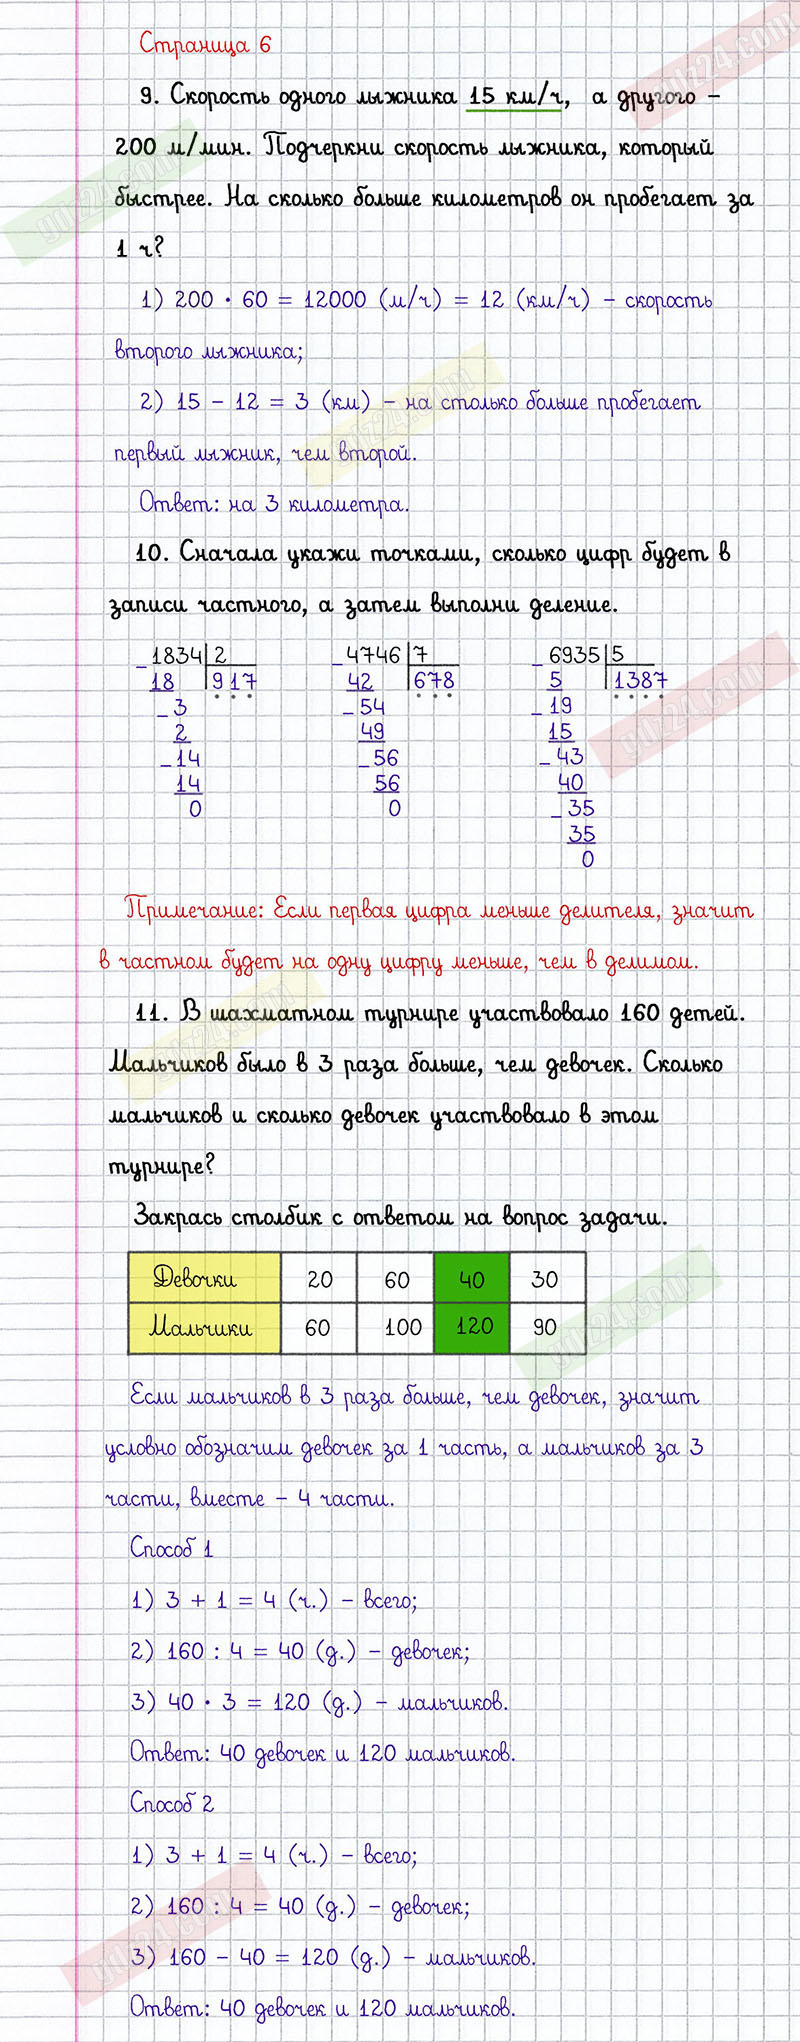 Страница 6
9. Скорость одного лыжника 15 км/ч, а другого –
200 м/мин. Подчеркни скорость лыжника, который
быстрее. На сколько больше километров он пробегает за
1 ч?
1) 200 · 60 = 12000 (м/ч) = 12 (км/ч) – скорость
второго лыжника;
2) 15 – 12 = 3 (км) – на столько больше пробегает
первый лыжник, чем второй.
Ответ: на 3 километра.
10. Сначала укажи точками, сколько цифр будет в
записи частного, а затем выполни деление.
1834 2 4746 7 6935 5
18 917 42 678 5 1387
3 54 19
2 49 15
14 56 43
14 56 40
0 0 35
35
0
Примечание: Если первая цифра меньше делителя, значит
в частном будет на одну цифру меньше, чем в делимом.
11. В шахматном турнире участвовало 160 детей.
Мальчиков было в 3 раза больше, чем девочек. Сколько
мальчиков и сколько девочек участвовало в этом
турнире?
Закрась столбик с ответом на вопрос задачи.
Девочки 20 60 40 30
Мальчики 60 100 120 90
Если мальчиков в 3 раза больше, чем девочек, значит
условно обозначим девочек за 1 часть, а мальчиков за 3
части, вместе – 4 части.
Способ 1
1) 3 + 1 = 4 (ч.) – всего;
2) 160 : 4 = 40 (д.) – девочек;
3) 40 · 3 = 120 (д.) – мальчиков.
Ответ: 40 девочек и 120 мальчиков.
Способ 2
1) 3 + 1 = 4 (ч.) – всего;
2) 160 : 4 = 40 (д.) – девочек;
3) 160 – 40 = 120 (д.) – мальчиков.
Ответ: 40 девочек и 120 мальчиков.
gdz24.com
gdz24.com
gdz24.com
gdz24.com
gdz24.com
gdz24.com
gdz24.com